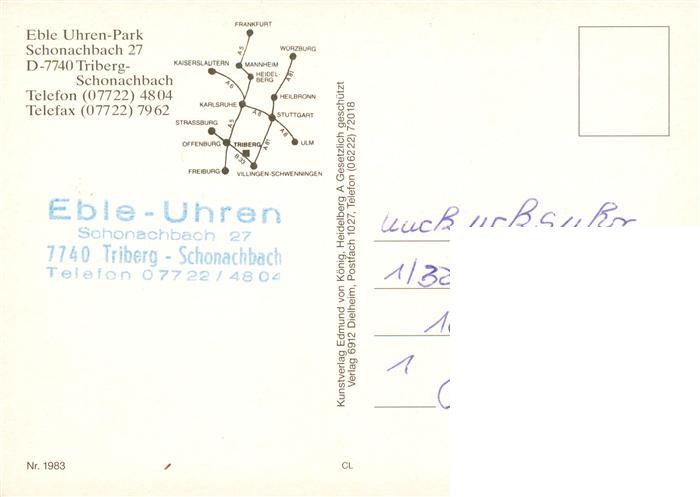 Eble Uhren-Park
Schonachbach 27
D-7740 Triberg-
Schonachbach
Telefon (07722) 4804
Telefax (07722) 7962
FRANKFURT
WÜRZBURG
KAISERSLAUTERN
A 5
MANNHEIM
A 81
HEIDEL-
BERG
A 6
HEILBRONN
KARLSRUHE
A 8
STUTTGART
STRASSBURG
A 5
A 81
A 8
OFFENBURG
TRIBERG
ULM
B 33
FREIBURG
VILLINGEN-SCHWENNINGEN
Eble-Uhren
Schonachbach 27
7740 Triberg - Schonachbach
Telefon 07722/4804
Kunstverlag Edmund von König, Heidelberg A Gesetzlich geschützt
Verlag 6912 Dielheim, Postfach 1027, Telefon (06222) 72018
1/32
1
Nr. 1983
CL